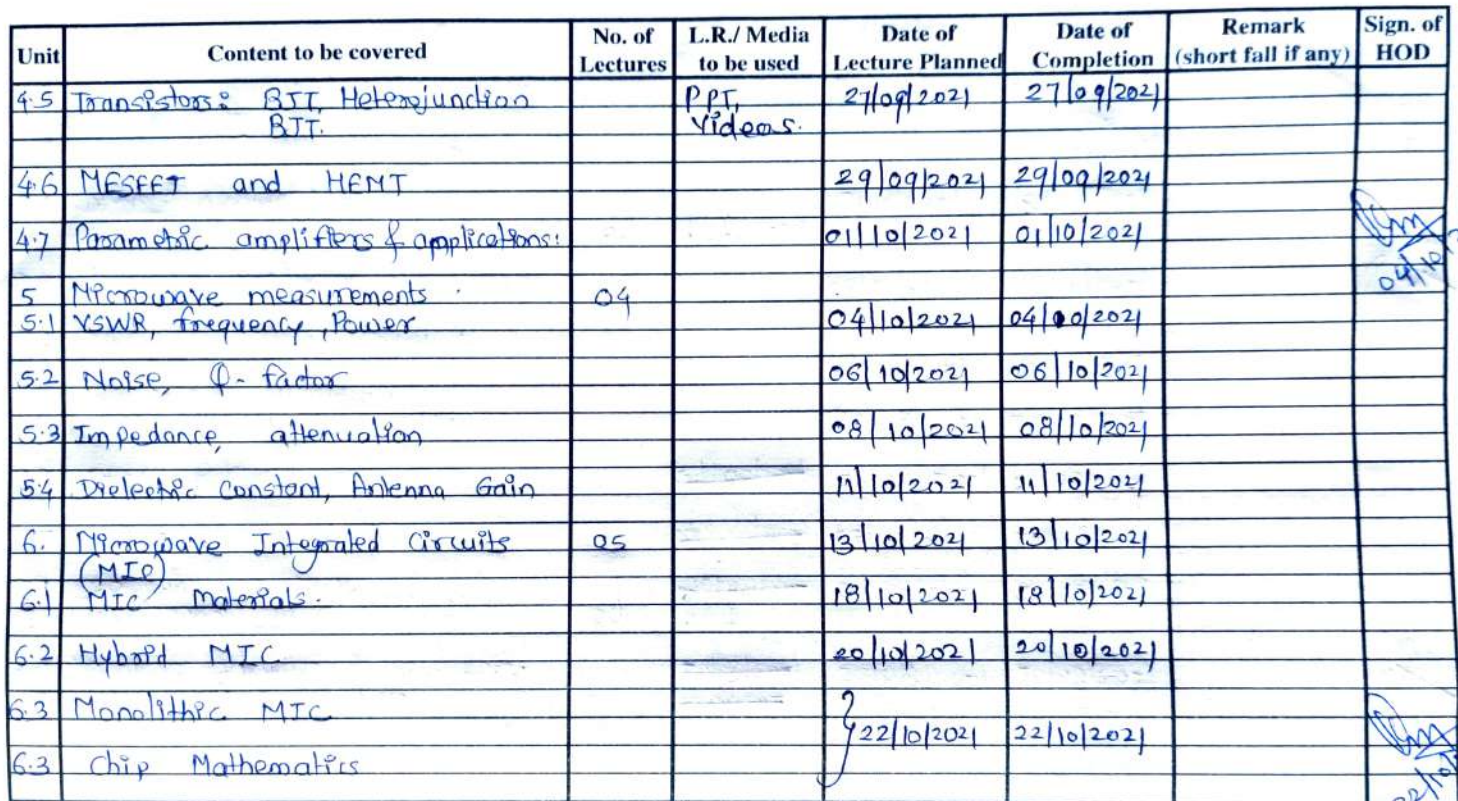 Unit Content to be covered No. of Lectures L.R./ Media to be used Date of Lecture Planned Date of Completion Remark (short fall if any) Sign. of HOD
4.5 Transistors: BJT, Heterojunction PPT, 27/09/2021 27/09/2021
BJT. Videos.
4.6 MESFET and HEMT 29/09/2021 29/09/2021
4.7 Parametric amplifiers & applications: 01/10/2021 01/10/2021
04/10/
5 Microwave measurements. 04
5.1 VSWR, frequency, Power 04/10/2021 04/10/2021
5.2 Noise, Q-factor 06/10/2021 06/10/2021
5.3 Impedance, attenuation 08/10/2021 08/10/2021
5.4 Dielectric Constant, Antenna Gain 11/10/2021 11/10/2021
6. Microwave Integrated Circuits 05 13/10/2021 13/10/2021
(MIC)
6.1 MIC Materials. 18/10/2021 18/10/2021
6.2 Hybrid MIC 20/10/2021 20/10/2021
6.3 Monolithic MIC
22/10/2021 22/10/2021
6.3 Chip Mathematics
22/10/